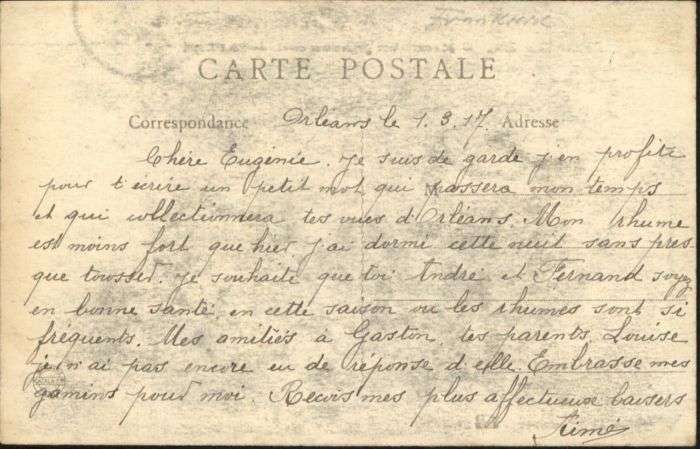 CARTE POSTALE
Correspondance Orléans le 1.3.17 Adresse
Chère Eugénie. Je suis de garde j'en profite
pour t'écrire un petit mot qui passera mon temps
et qui collectionnera tes vues d'Orléans. Mon rhume
est moins fort que hier j'ai dormi cette nuit sans pres
que tousser. Je souhaite que toi André et Fernand soyez
en bonne santé en cette saison ou les rhumes sont si
fréquents. Mes amitiés à Gaston, tes parents, Louise
je n'ai pas encore eu de réponse d'elle. Embrasse mes
gamins pour moi. Reçois mes plus affectueux baisers
Aimé